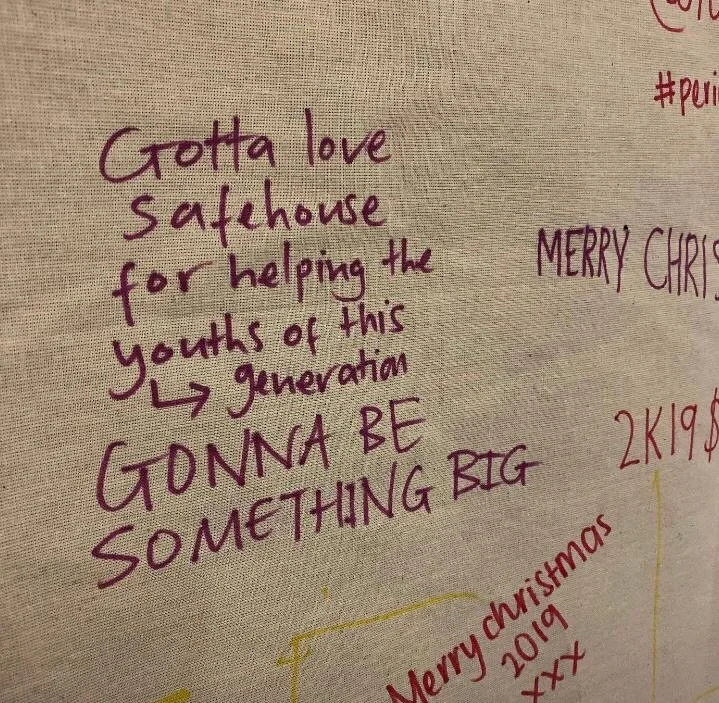 #peri
Gotta love
safehouse
for helping the
youths of this
↳ generation
GONNA BE
SOMETHING BIG
MERRY CHRIS
2K19$
Merry christmas
2019
xxx